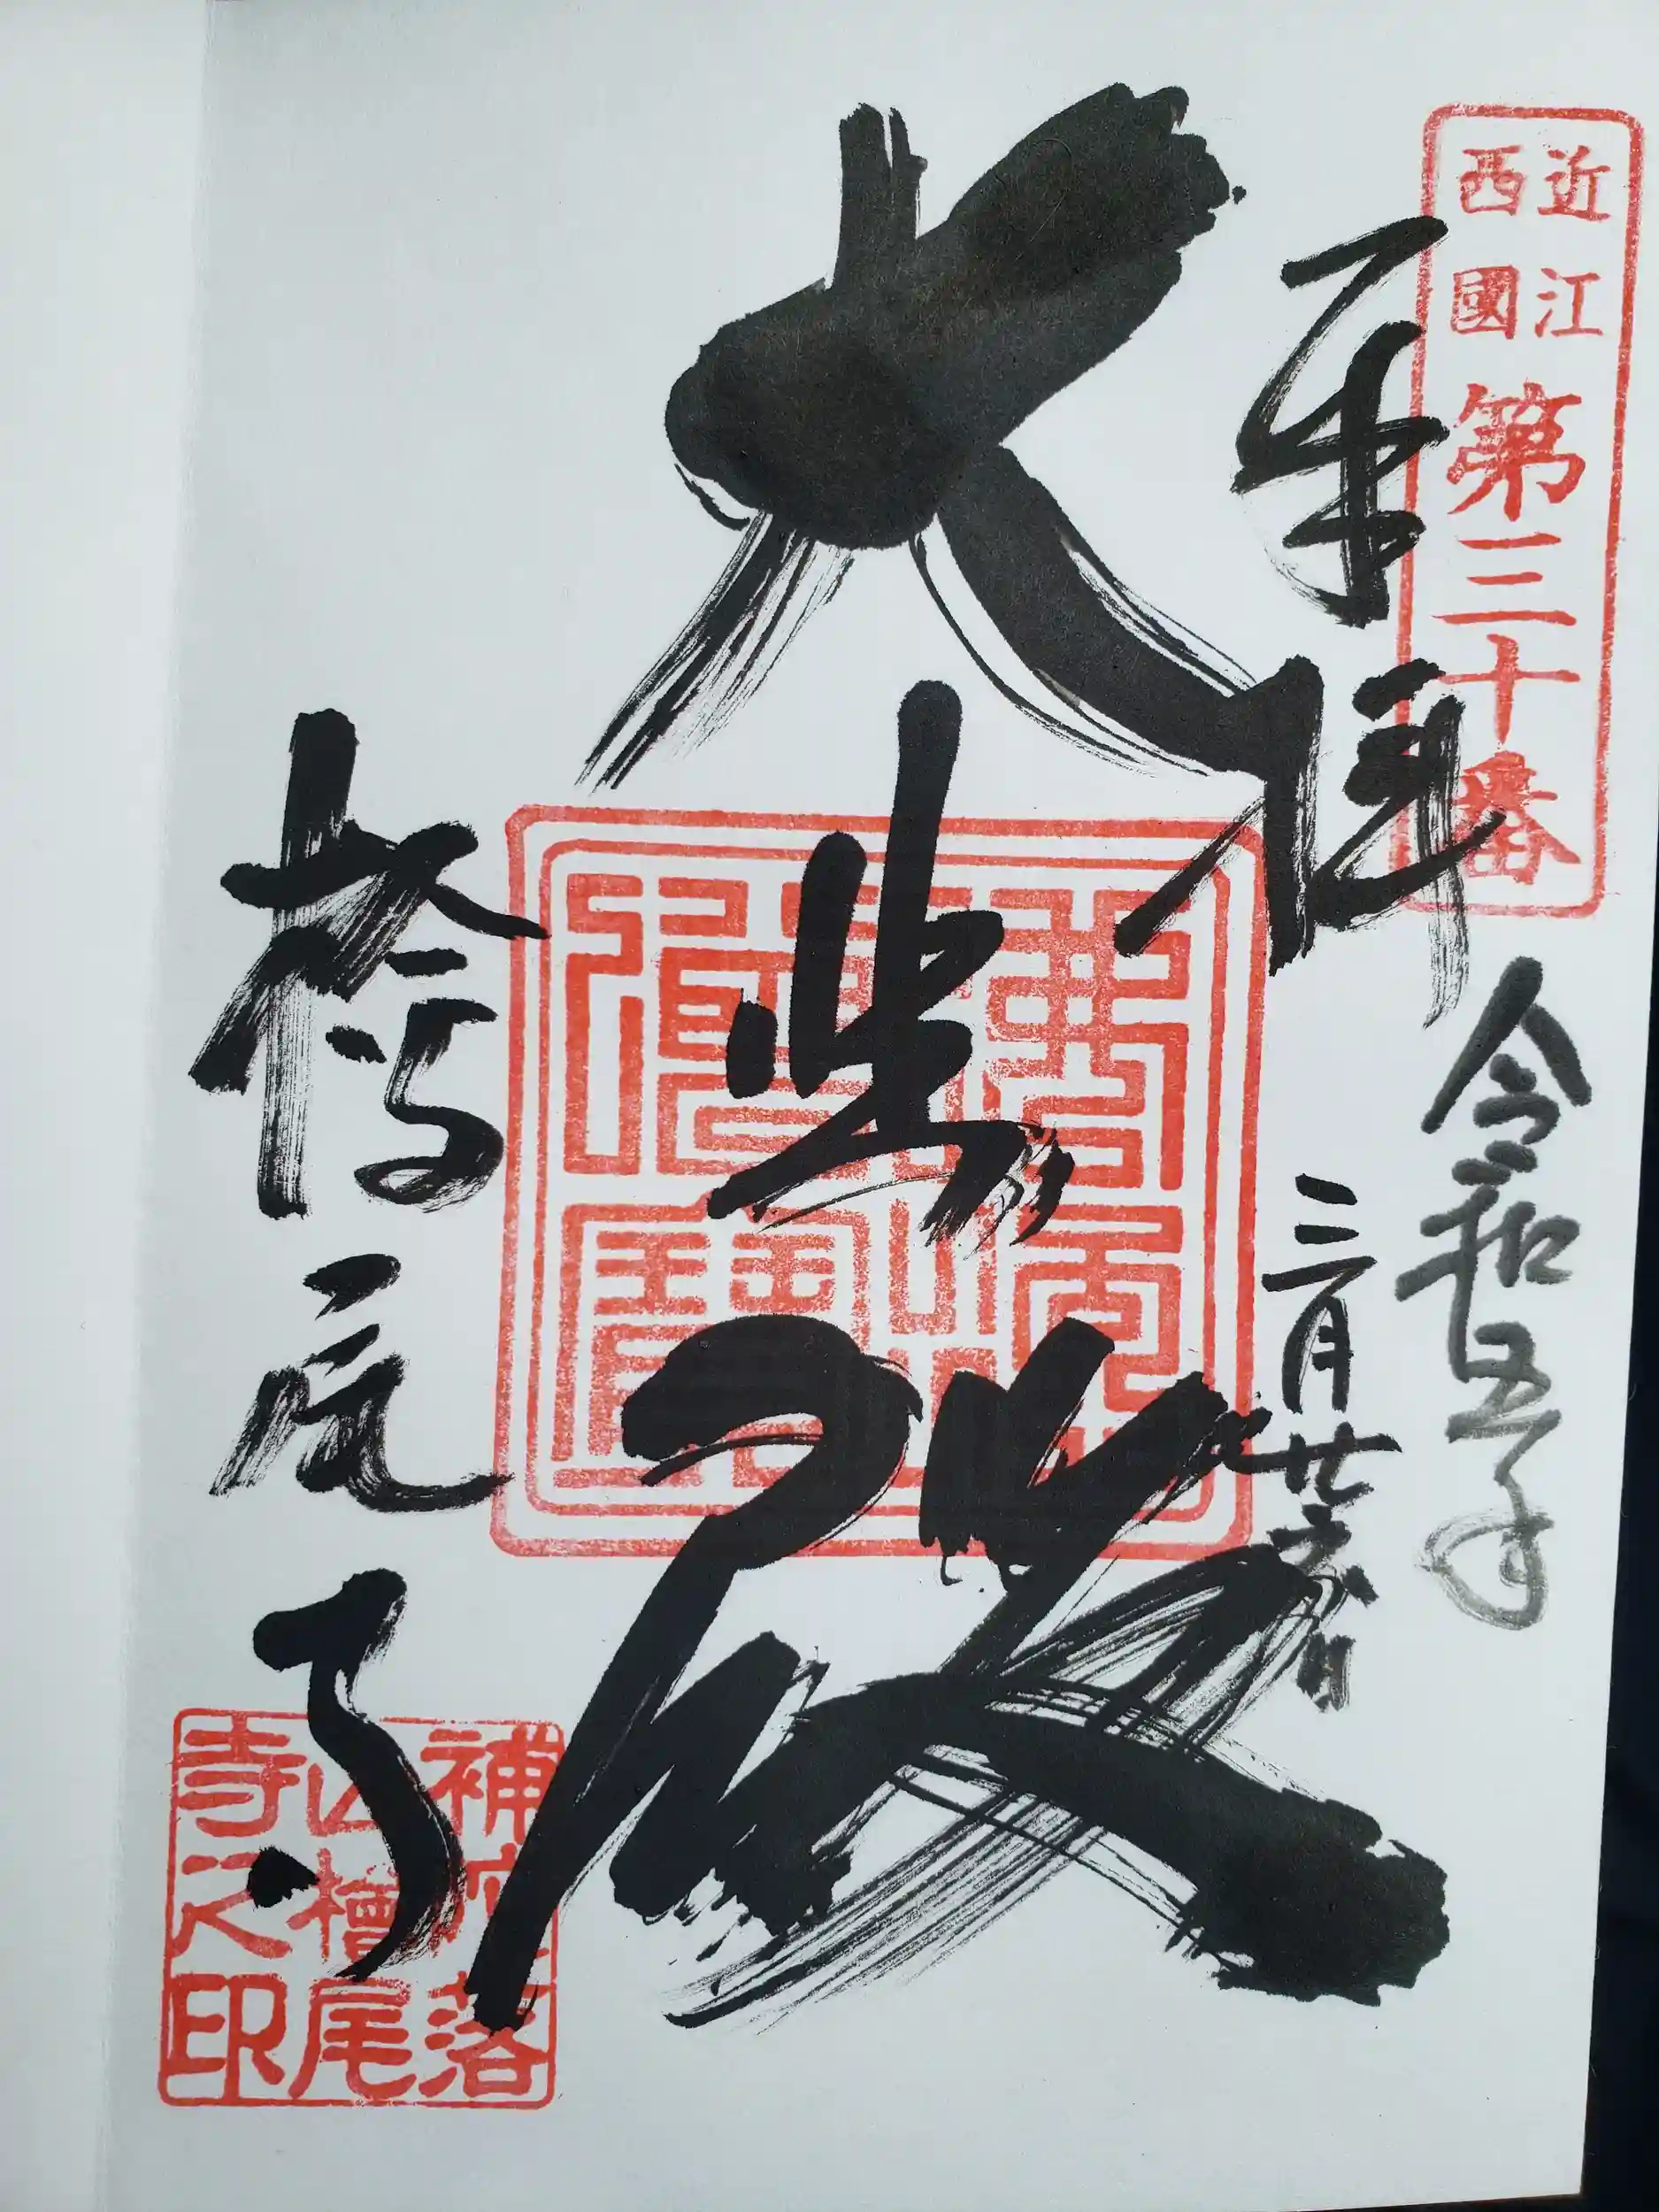 近江
西國
第三十番
奉拝
令和五年
三月廿六日
大悲殿
桧尾寺
補陀落
山檜尾
寺之印